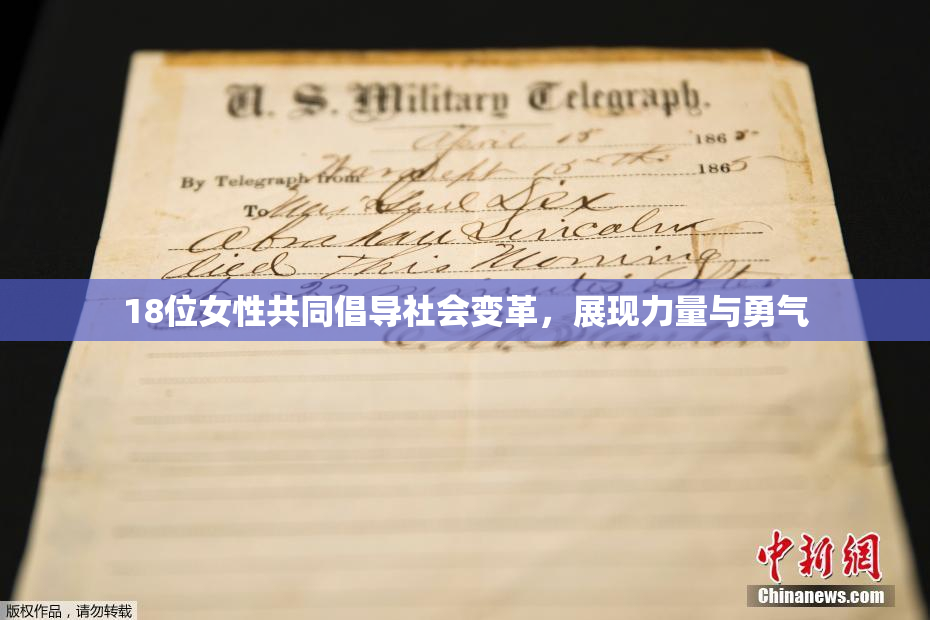 U. S. Military Telegraph.
April 15 1865
By Telegraph from War Dept 15th 1865
To Maj Genl Dix
Abraham Lincoln
died This Morning
at 22 minutes after
18位女性共同倡导社会变革，展现力量与勇气
E. M. Stanton
中新网
Chinanews.com
版权作品，请勿转载